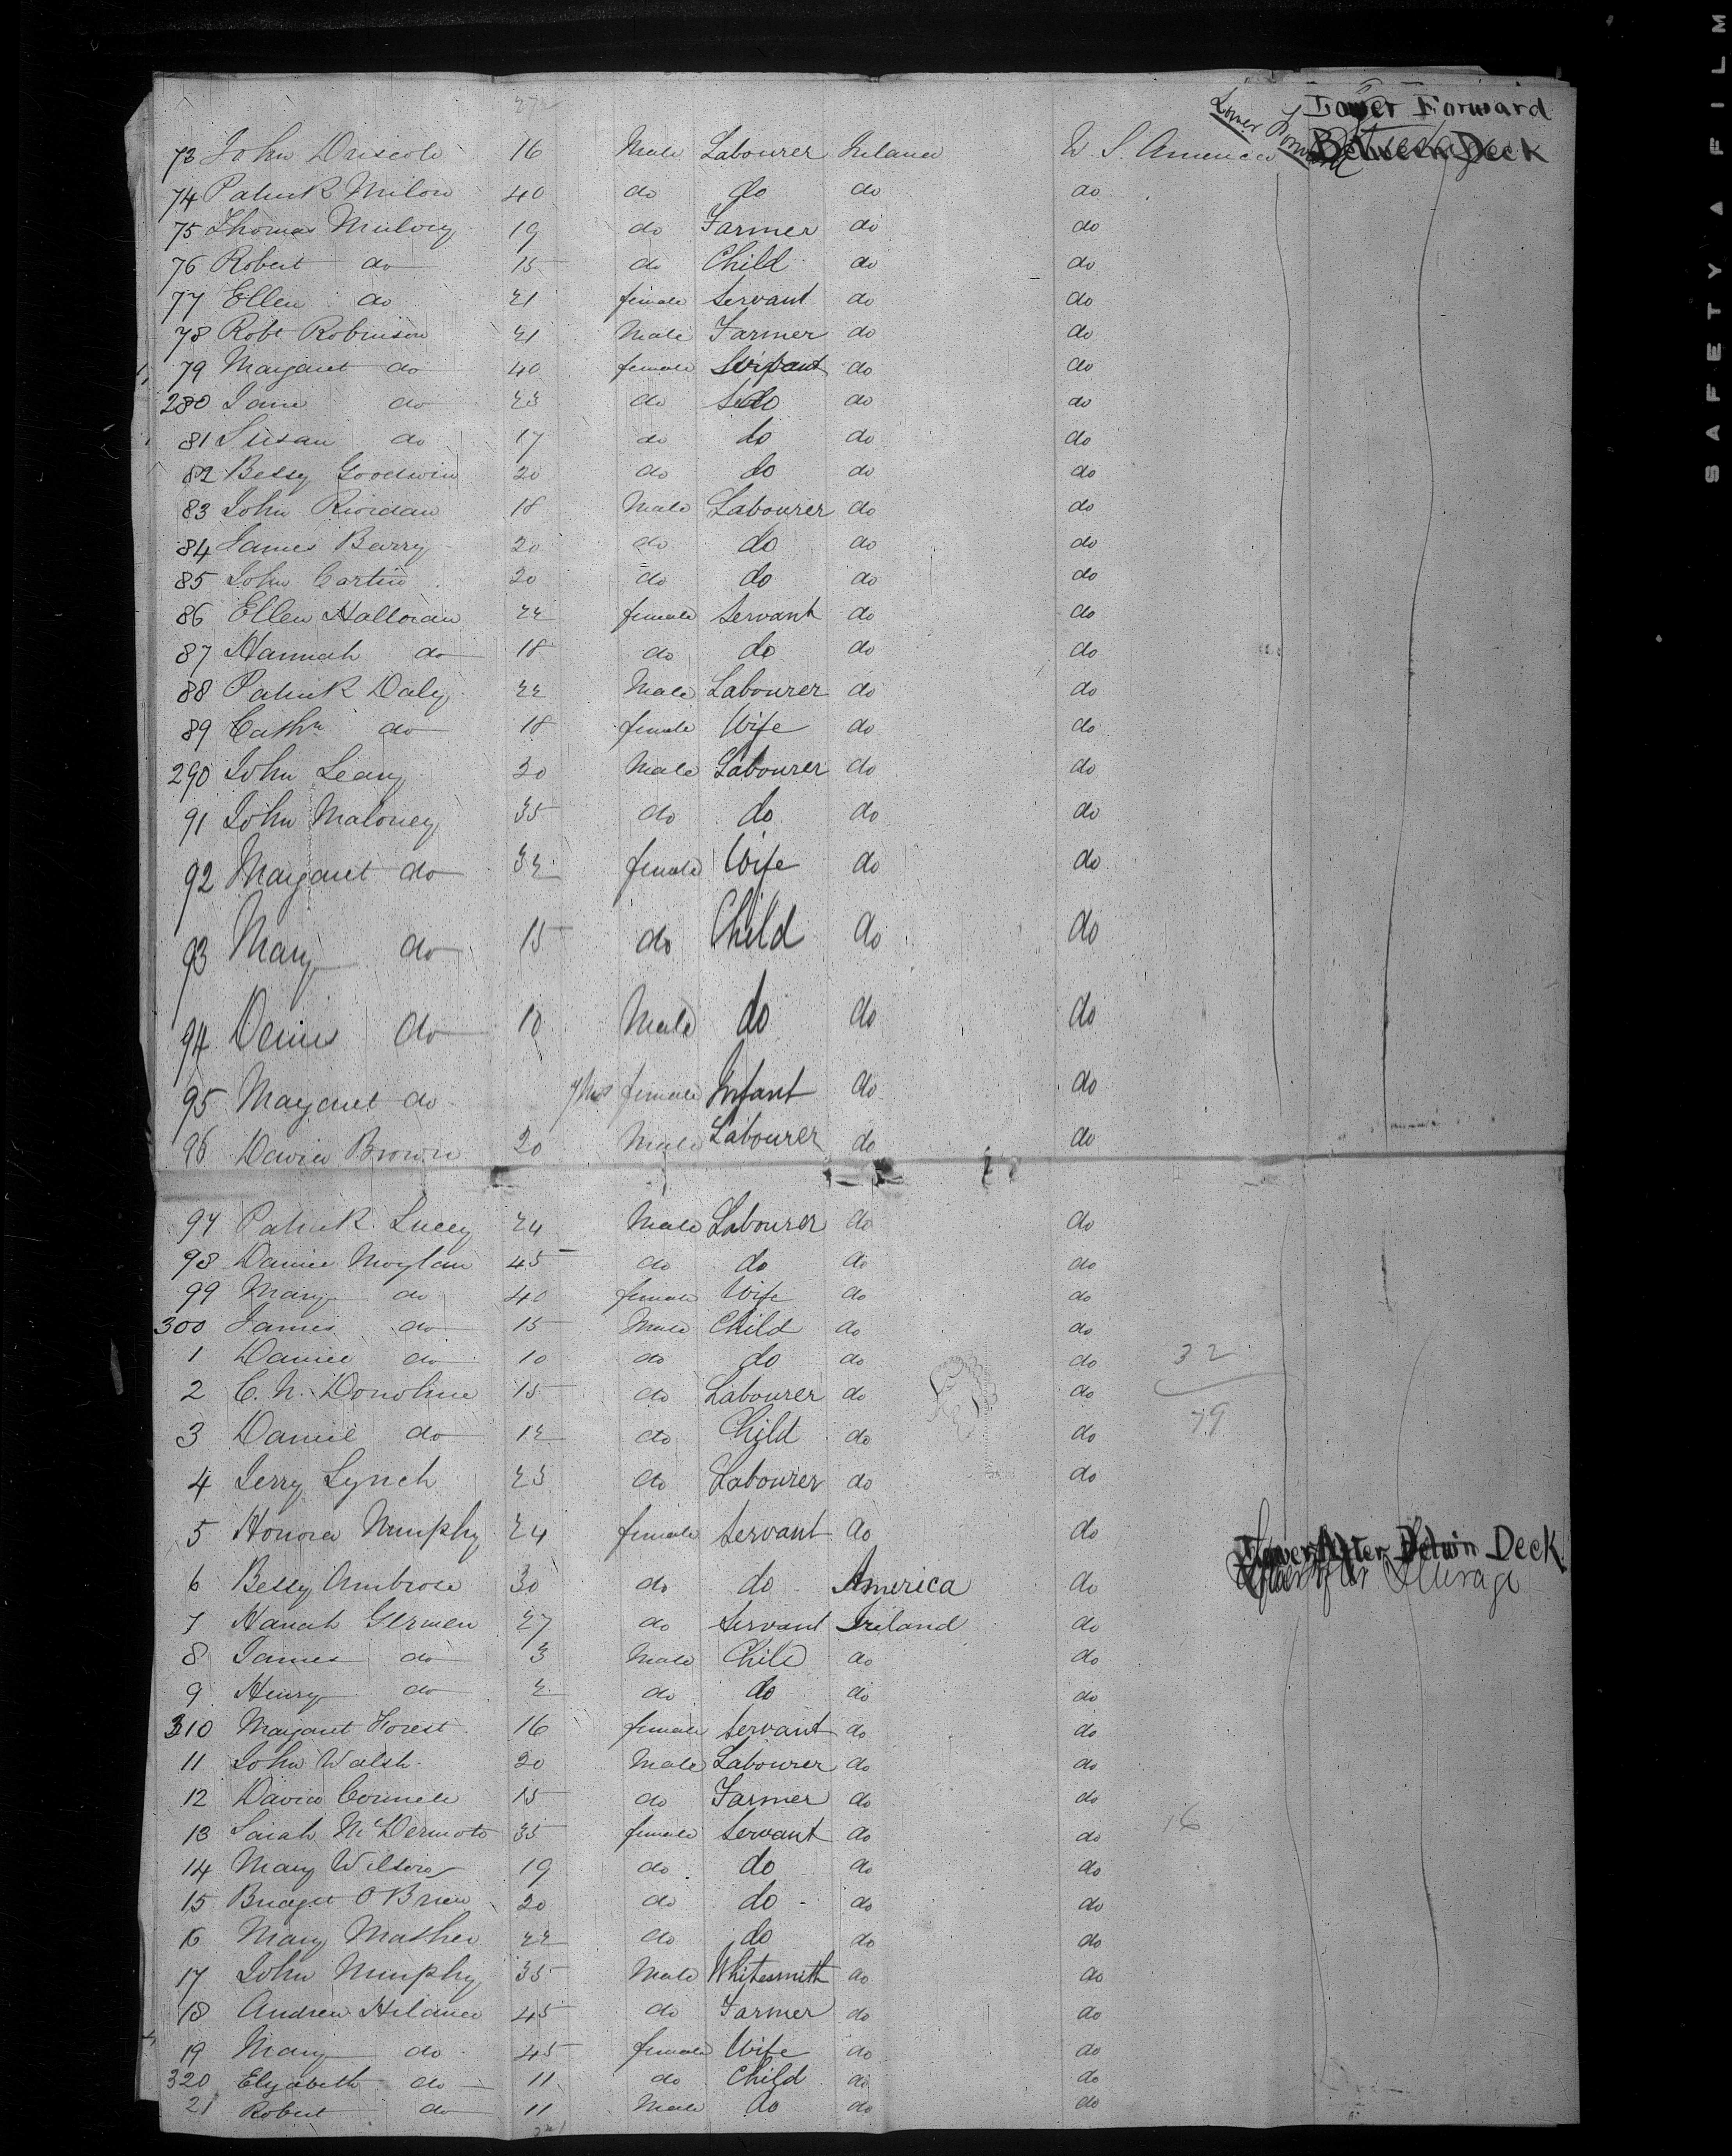 Lower Forward
73 John Driscole 16 Male Labourer Ireland U. S. America Between Deck
74 Patrick Milon 40 do do do do
75 Thomas Mulvey 19 do Farmer do do
76 Robert do 15 do Child do do
77 Ellen do 21 female Servant do do
78 Robt Robinson 21 Male Farmer do do
79 Margaret do 40 female do do
280 Jane do 23 do do do do
81 Susan do 17 do do do do
82 Bessy Goodwin 20 do do do do
83 John Riordan 18 Male Labourer do do
84 James Barry 20 do do do do
85 John Cartin 20 do do do do
86 Ellen Halloran 22 female Servant do do
87 Hannah do 18 do do do do
88 Patrick Daly 22 Male Labourer do do
89 Cathn do 18 female Wife do do
290 John Leary 30 Male Labourer do do
91 John Maloney 35 do do do do
92 Margaret do 32 female Wife do do
93 Mary do 15 do Child do do
94 Denis do 10 Male do do do
95 Margaret do female Infant do do
96 David Brown 20 Male Labourer do do
97 Patrick Lucey 24 Male Labourer do do
98 Daniel Moylan 45 do do do do
99 Mary do 40 female Wife do do
300 James do 15 Male Child do do
1 Daniel do 10 do do do do 32
2 C. N. Donohue 15 do Labourer do do
3 Daniel do 12 do Child do do 79
4 Jerry Lynch 23 do Labourer do do
5 Honora Murphy 24 female Servant do do
Lower After Betwn Deck
6 Bessy Ambrose 30 do do America do
7 Hanah Germen 27 do Servant Ireland do
8 James do 3 Male Child do do
9 Henry do 2 do do do do
310 Margaret Forest 16 female Servant do do
11 John Walsh 20 Male Labourer do do
12 David Connele 15 do Farmer do do
13 Sarah McDermoto 35 female Servant do do 16
14 Mary Wilson 19 do do do do
15 Bridget O Brien 20 do do do do
16 Mary Mather 22 do do do do
17 John Murphy 35 Male Whitesmith do do
18 Andrew Hiland 45 do Farmer do do
19 Mary do 45 female Wife do do
320 Elizabeth do 11 do Child do do
21 Robert do 11 Male do do do
SAFETY A FILM